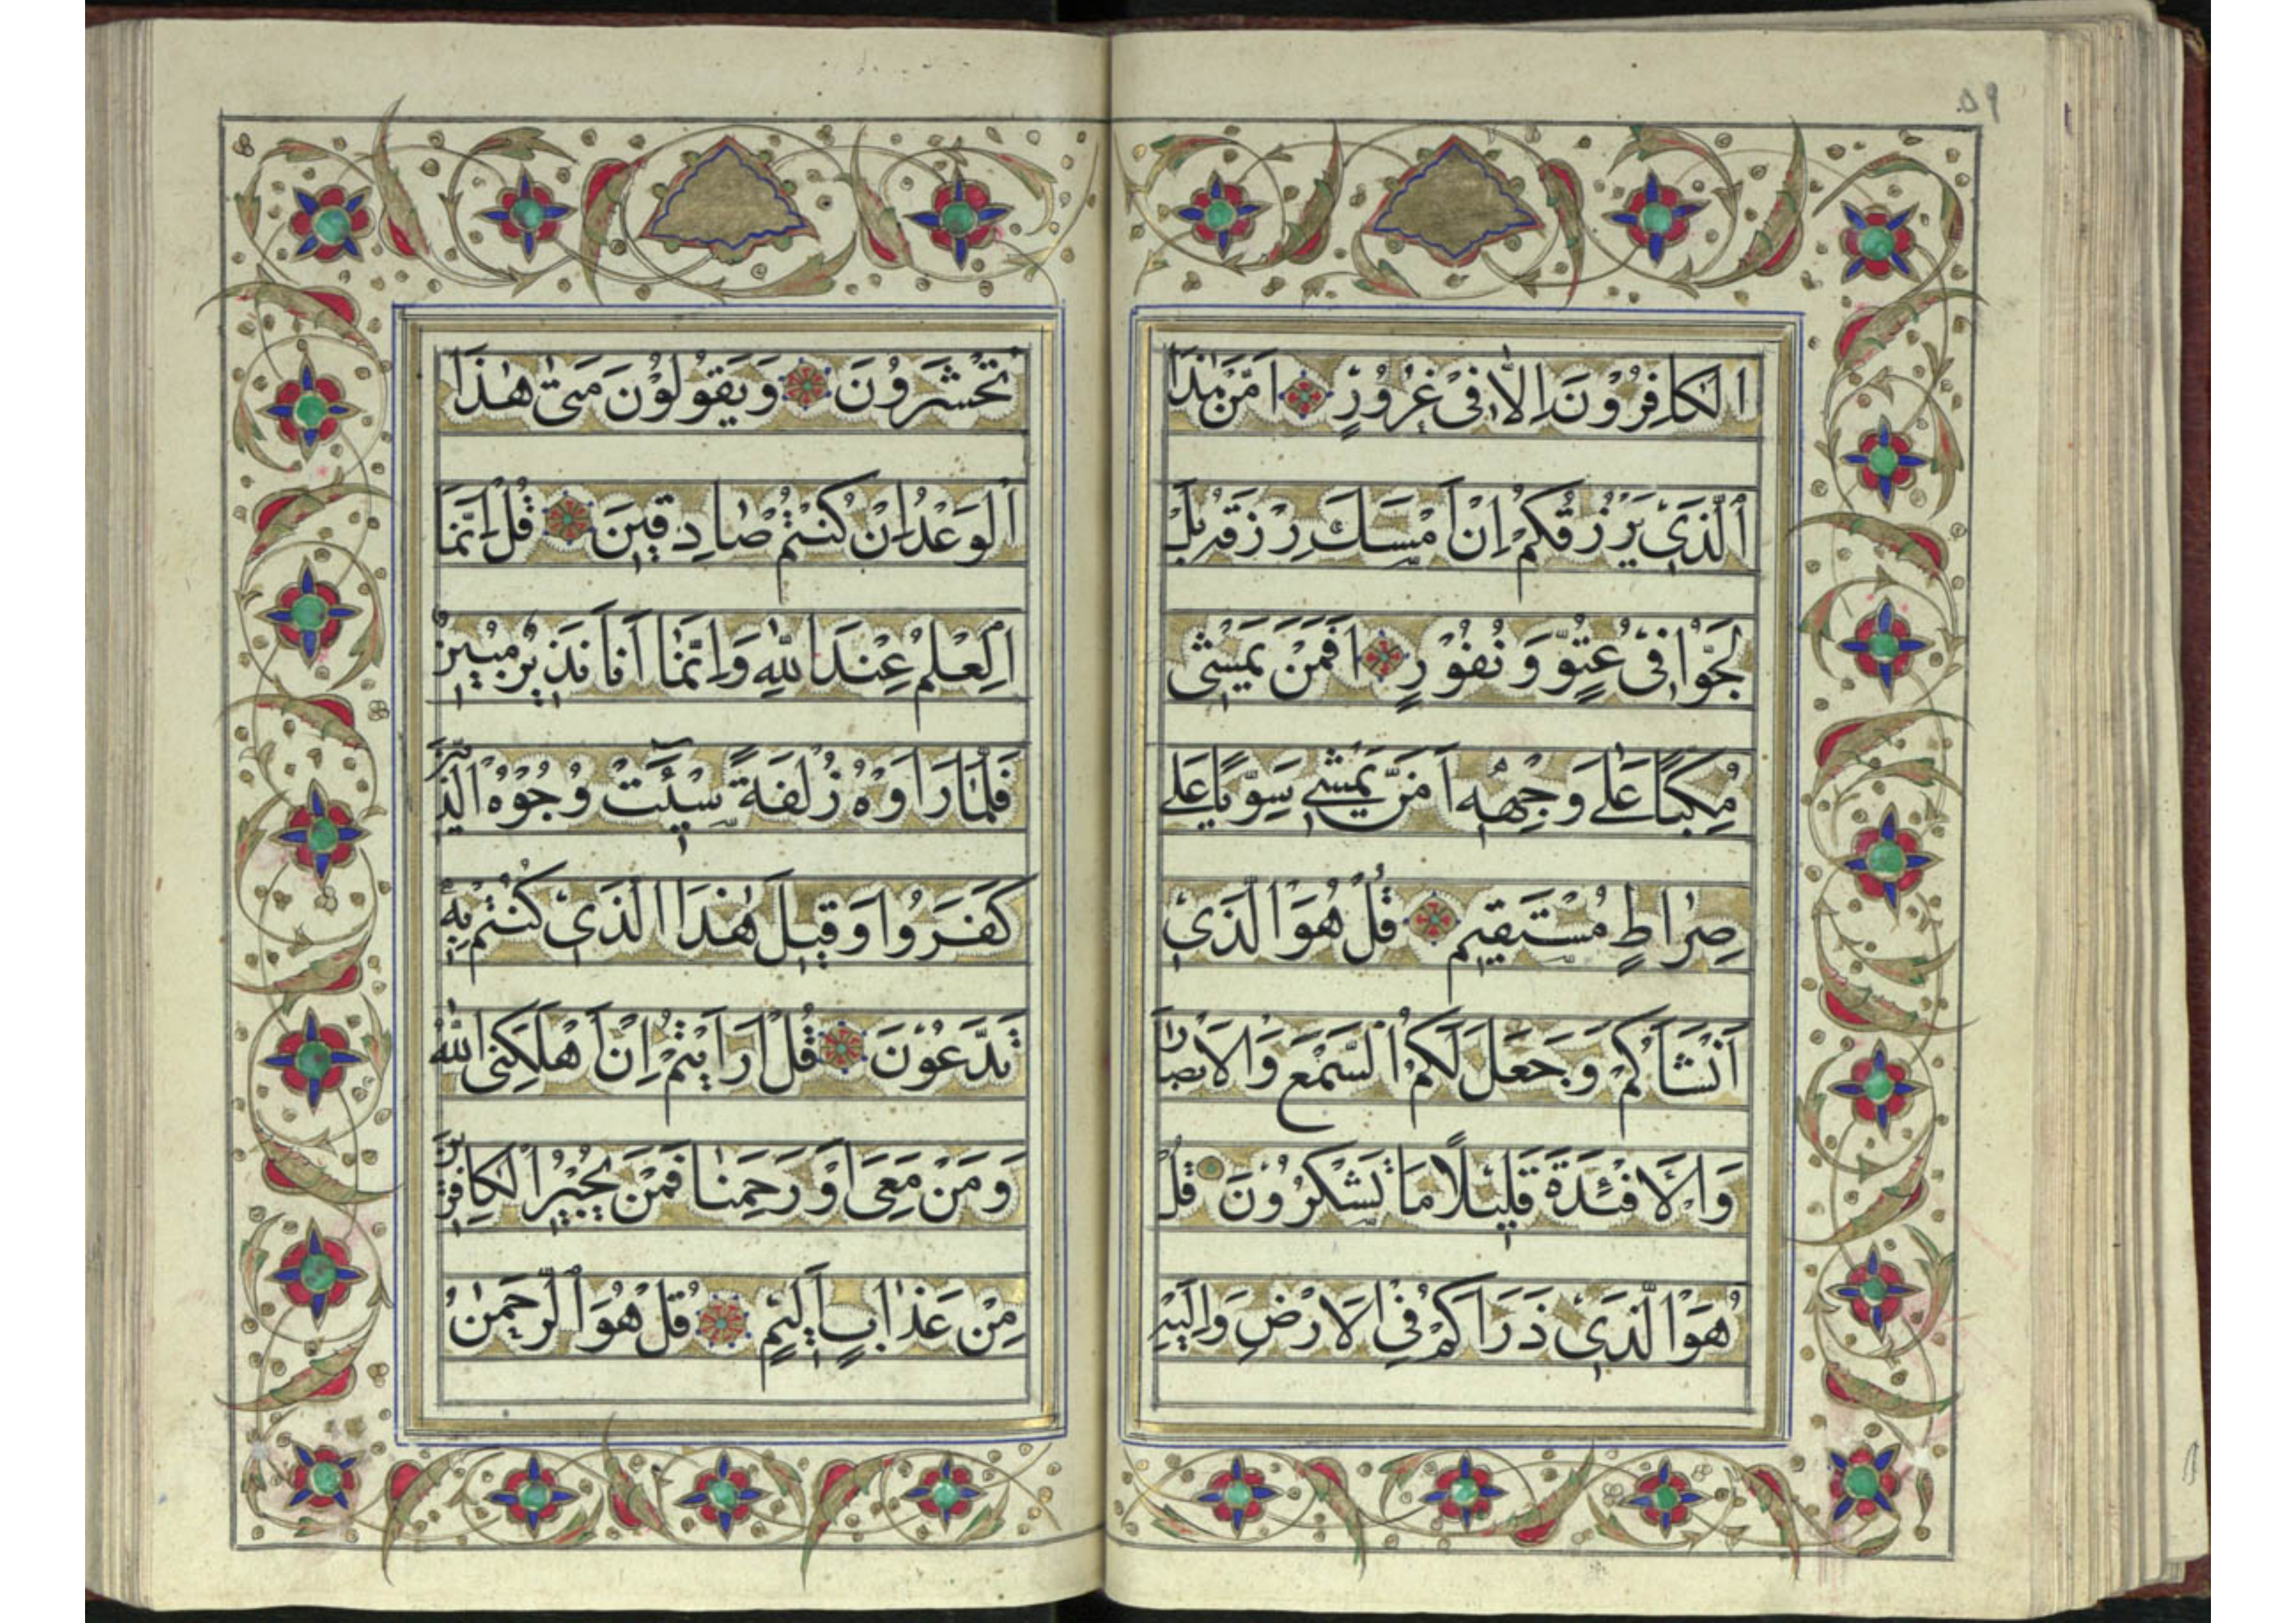 ٥٩
الْكَافِرُوْنَ اِلَّا فِیْ غُرُوْرٍ اَمَّنْ هٰذَا
الَّذِیْ یَرْزُقُكُمْ اِنْ اَمْسَكَ رِزْقَهُ بَلْ
لَجُّوْا فِیْ عُتُوٍّ وَنُفُوْرٍ اَفَمَنْ یَمْشِیْ
مُكِبًّا عَلٰی وَجْهِهٖ اَمَّنْ یَمْشِیْ سَوِیًّا عَلٰی
صِرَاطٍ مُسْتَقِیْمٍ قُلْ هُوَ الَّذِیْ
اَنْشَاَكُمْ وَجَعَلَ لَكُمُ السَّمْعَ وَالْاَبْصَارَ
وَالْاَفْئِدَةَ قَلِیْلًا مَا تَشْكُرُوْنَ قُلْ
هُوَ الَّذِیْ ذَرَاَكُمْ فِی الْاَرْضِ وَاِلَیْهِ
تُحْشَرُوْنَ وَیَقُوْلُوْنَ مَتٰی هٰذَا
الْوَعْدُ اِنْ كُنْتُمْ صَادِقِیْنَ قُلْ اِنَّمَا
الْعِلْمُ عِنْدَ اللّٰهِ وَاِنَّمَا اَنَا نَذِیْرٌ مُبِیْنٌ
فَلَمَّا رَاَوْهُ زُلْفَةً سِیْئَتْ وُجُوْهُ الَّذِیْنَ
كَفَرُوْا وَقِیْلَ هٰذَا الَّذِیْ كُنْتُمْ بِهٖ
تَدَّعُوْنَ قُلْ اَرَاَیْتُمْ اِنْ اَهْلَكَنِیَ اللّٰهُ
وَمَنْ مَعِیَ اَوْ رَحِمَنَا فَمَنْ یُجِیْرُ الْكَافِرِیْنَ
مِنْ عَذَابٍ اَلِیْمٍ قُلْ هُوَ الرَّحْمٰنُ